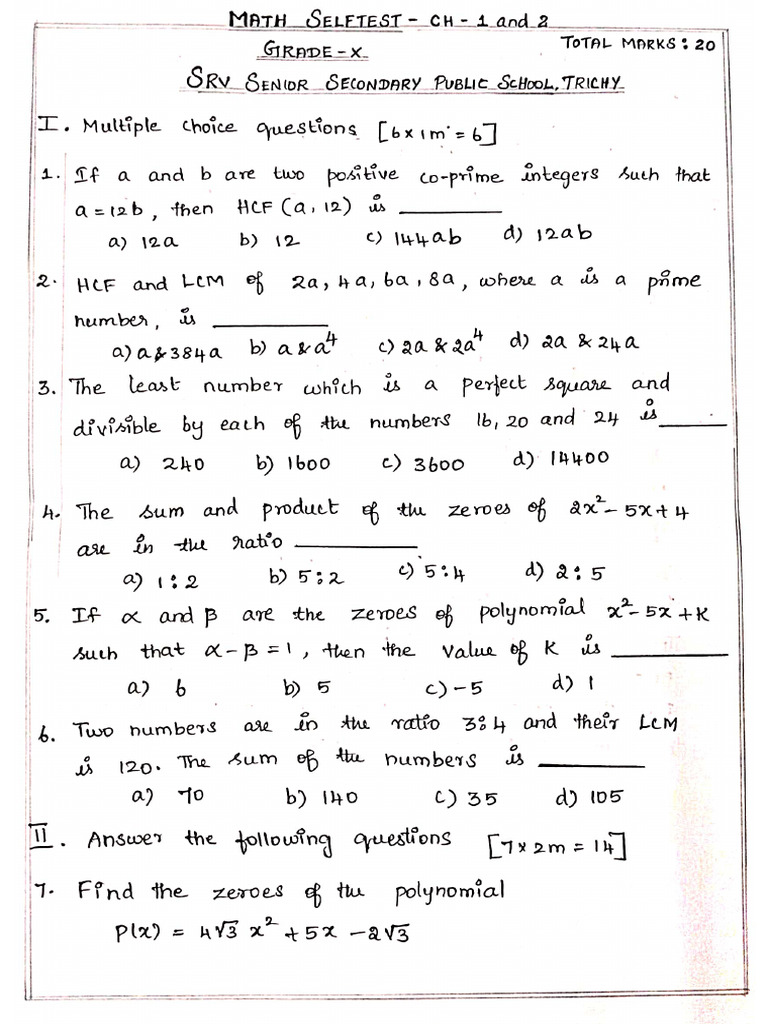 MATH SELFTEST - CH - 1 and 2
GRADE - X TOTAL MARKS: 20
SRV SENIOR SECONDARY PUBLIC SCHOOL, TRICHY
I. Multiple choice questions [6 x 1m = 6]
1. If a and b are two positive co-prime integers such that
a = 12b, then HCF (a, 12) is ________
a) 12a b) 12 c) 144ab d) 12ab
2. HCF and LCM of 2a, 4a, 6a, 8a, where a is a prime
number, is ________
a) a & 384a b) a & a⁴ c) 2a & 2a⁴ d) 2a & 24a
3. The least number which is a perfect square and
divisible by each of the numbers 16, 20 and 24 is ________
a) 240 b) 1600 c) 3600 d) 14400
4. The sum and product of the zeroes of 2x² - 5x + 4
are in the ratio ________
a) 1:2 b) 5:2 c) 5:4 d) 2:5
5. If α and β are the zeroes of polynomial x² - 5x + K
such that α - β = 1, then the value of K is ________
a) 6 b) 5 c) -5 d) 1
6. Two numbers are in the ratio 3:4 and their LCM
is 120. The sum of the numbers is ________
a) 70 b) 140 c) 35 d) 105
II. Answer the following questions [7 x 2m = 14]
7. Find the zeroes of the polynomial
P(x) = 4√3 x² + 5x - 2√3